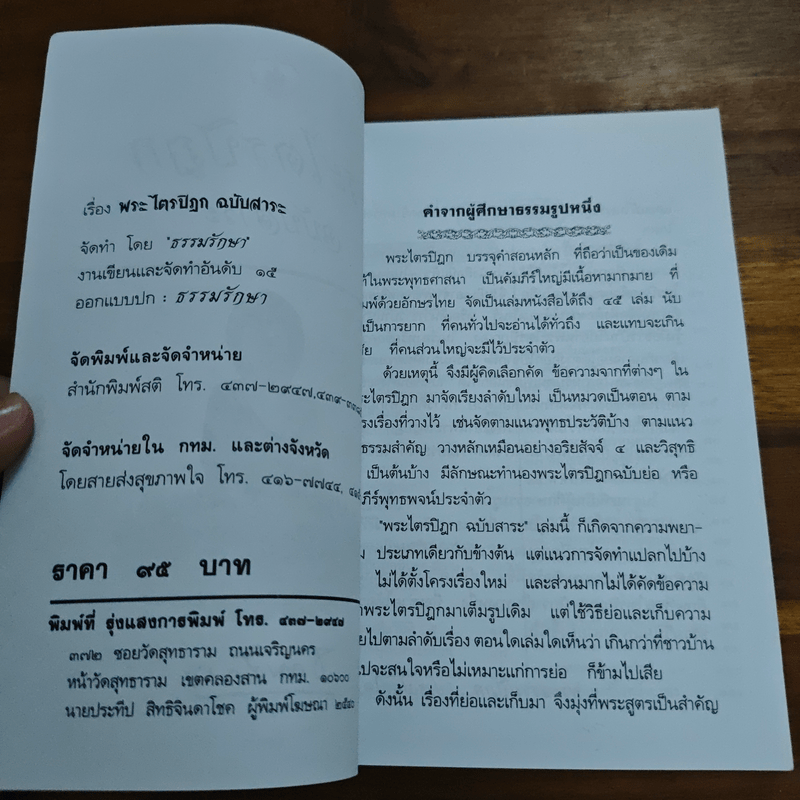 เรื่อง พระไตรปิฎก ฉบับสาระ
จัดทำ โดย "ธรรมรักษา"
งานเขียนและจัดทำอันดับ ๑๕
ออกแบบปก : ธรรมรักษา
จัดพิมพ์และจัดจำหน่าย
สำนักพิมพ์สติ โทร. ๔๓๗-๒๙๔๗,
จัดจำหน่ายใน กทม. และต่างจังหวัด
โดยสายส่งสุขภาพใจ โทร. ๔๑๖-๗๗๔๔,
ราคา ๙๕ บาท
พิมพ์ที่ รุ่งแสงการพิมพ์ โทร. ๔๓๗-๒๙๔๗
๓๗๒ ซอยวัดสุทธาราม ถนนเจริญนคร
หน้าวัดสุทธาราม เขตคลองสาน กทม. ๑๐๖๐๐
นายประทีป สิทธิจินดาโชค ผู้พิมพ์โฆษณา
คำจากผู้ศึกษาธรรมรูปหนึ่ง
พระไตรปิฎก บรรจุคำสอนหลัก ที่ถือว่าเป็นของเดิม
ในพระพุทธศาสนา เป็นคัมภีร์ใหญ่มีเนื้อหามากมาย ที่
พิมพ์ด้วยอักษรไทย จัดเป็นเล่มหนังสือได้ถึง ๔๕ เล่ม นับ
เป็นการยาก ที่คนทั่วไปจะอ่านได้ทั่วถึง และแทบจะเกิน
ที่คนส่วนใหญ่จะมีไว้ประจำตัว
ด้วยเหตุนี้ จึงมีผู้คิดเลือกคัด ข้อความจากที่ต่างๆ ใน
ไตรปิฎก มาจัดเรียงลำดับใหม่ เป็นหมวดเป็นตอน ตาม
เรื่องที่วางไว้ เช่นจัดตามแนวพุทธประวัติบ้าง ตามแนว
ธรรมสำคัญ วางหลักเหมือนอย่างอริยสัจจ์ ๔ และวิสุทธิ
เป็นต้นบ้าง มีลักษณะทำนองพระไตรปิฎกฉบับย่อ หรือ
ภีร์พุทธพจน์ประจำตัว
"พระไตรปิฎก ฉบับสาระ" เล่มนี้ ก็เกิดจากความพยา-
ประเภทเดียวกับข้างต้น แต่แนวการจัดทำแปลกไปบ้าง
ไม่ได้ตั้งโครงเรื่องใหม่ และส่วนมากไม่ได้คัดข้อความ
พระไตรปิฎกมาเต็มรูปเดิม แต่ใช้วิธีย่อและเก็บความ
ไปตามลำดับเรื่อง ตอนใดเล่มใดเห็นว่า เกินกว่าที่ชาวบ้าน
จะสนใจหรือไม่เหมาะแก่การย่อ ก็ข้ามไปเสีย
ดังนั้น เรื่องที่ย่อและเก็บมา จึงมุ่งที่พระสูตรเป็นสำคัญ